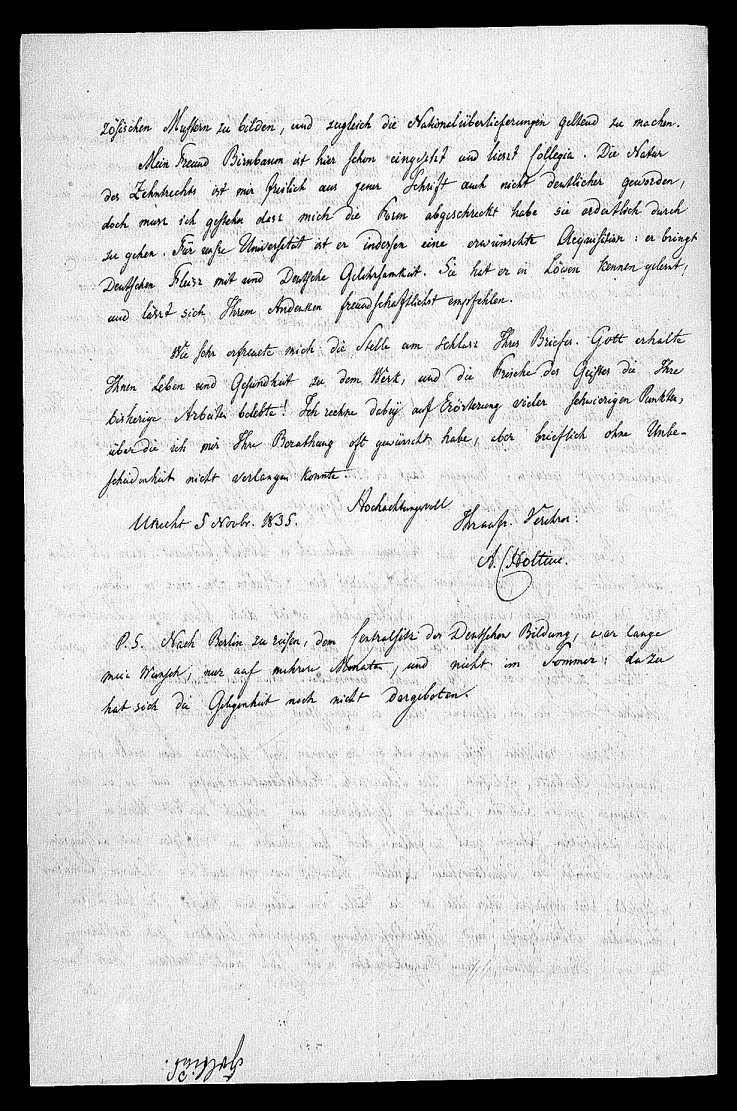 zösischen Mustern zu bilden, und zugleich die Nationalüberlieferungen geltend zu machen.
Mein Freund Birnbaum ist hier schon eingesetzt und liest Collegia. Die Natur
des Zehntrechts ist mir freilich aus jener Schrift auch nicht deutlicher geworden,
doch muss ich gestehn dass mich die Form abgeschreckt habe sie ordentlich durch
zu gehen. Für unsre Universität ist er indessen eine erwünschte Acquisition: er bringt
Deutschen Fleisz mit und Deutsche Gelehrsamkeit. Sie hat er in Löwen kennen gelernt,
und lässt sich Ihrem Andenken freundschaftlichst empfehlen.
Wie sehr erfreuete mich die Stelle am Schlusz Ihres Briefes. Gott erhalte
Ihnen Leben und Gesundheit zu dem Werk, und die Frische des Geistes die Ihre
bisherige Arbeiten belebte! Ich rechne dabey auf Erörterung vieler schwierigen Punkten,
über die ich mir Ihre Berathung oft gewünscht habe, aber brieflich ohne Unbe-
scheidenheit nicht verlangen konnte.
Hochachtungsvoll
Utrecht 5 Novbr. 1835.
Ihr Verehrer:
A. C. Holtius.
P.S. Nach Berlin zu reisen, dem Centralsitz der Deutschen Bildung, war lange
mein Wunsch, nur auf mehrere Monate, und nicht im Sommer: dazu
hat sich die Gelegenheit noch nicht dargeboten.
Holtius.